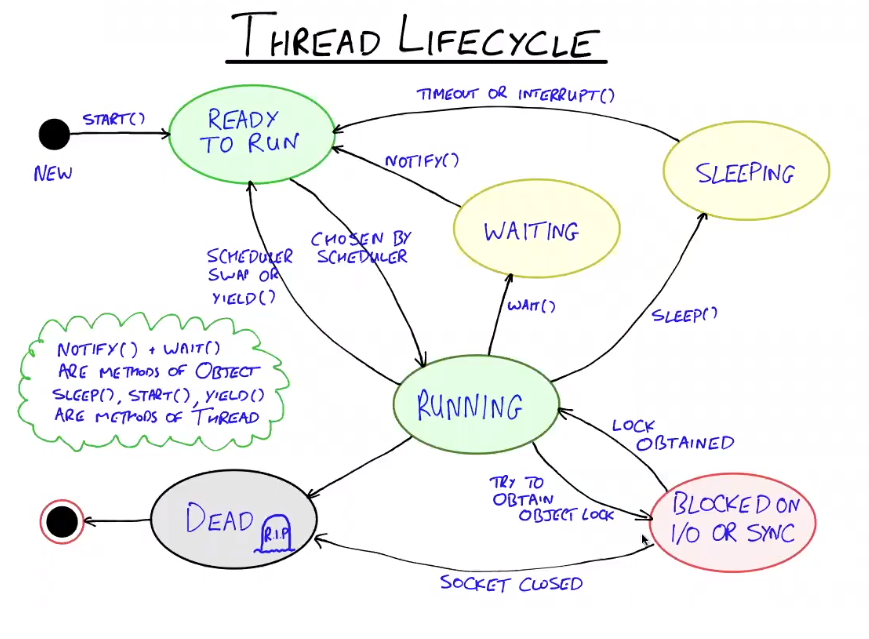 THREAD LIFECYCLE
START()
NEW
READY
TO RUN
TIMEOUT OR INTERRUPT()
NOTIFY()
SLEEPING
WAITING
SCHEDULER
SWAP OR
YIELD()
CHOSEN BY
SCHEDULER
WAIT()
SLEEP()
NOTIFY() + WAIT()
ARE METHODS OF OBJECT
SLEEP(), START(), YIELD()
ARE METHODS OF THREAD
RUNNING
LOCK
OBTAINED
TRY TO
OBTAIN
OBJECT LOCK
BLOCKED ON
I/O OR SYNC
DEAD
R.I.P
SOCKET CLOSED